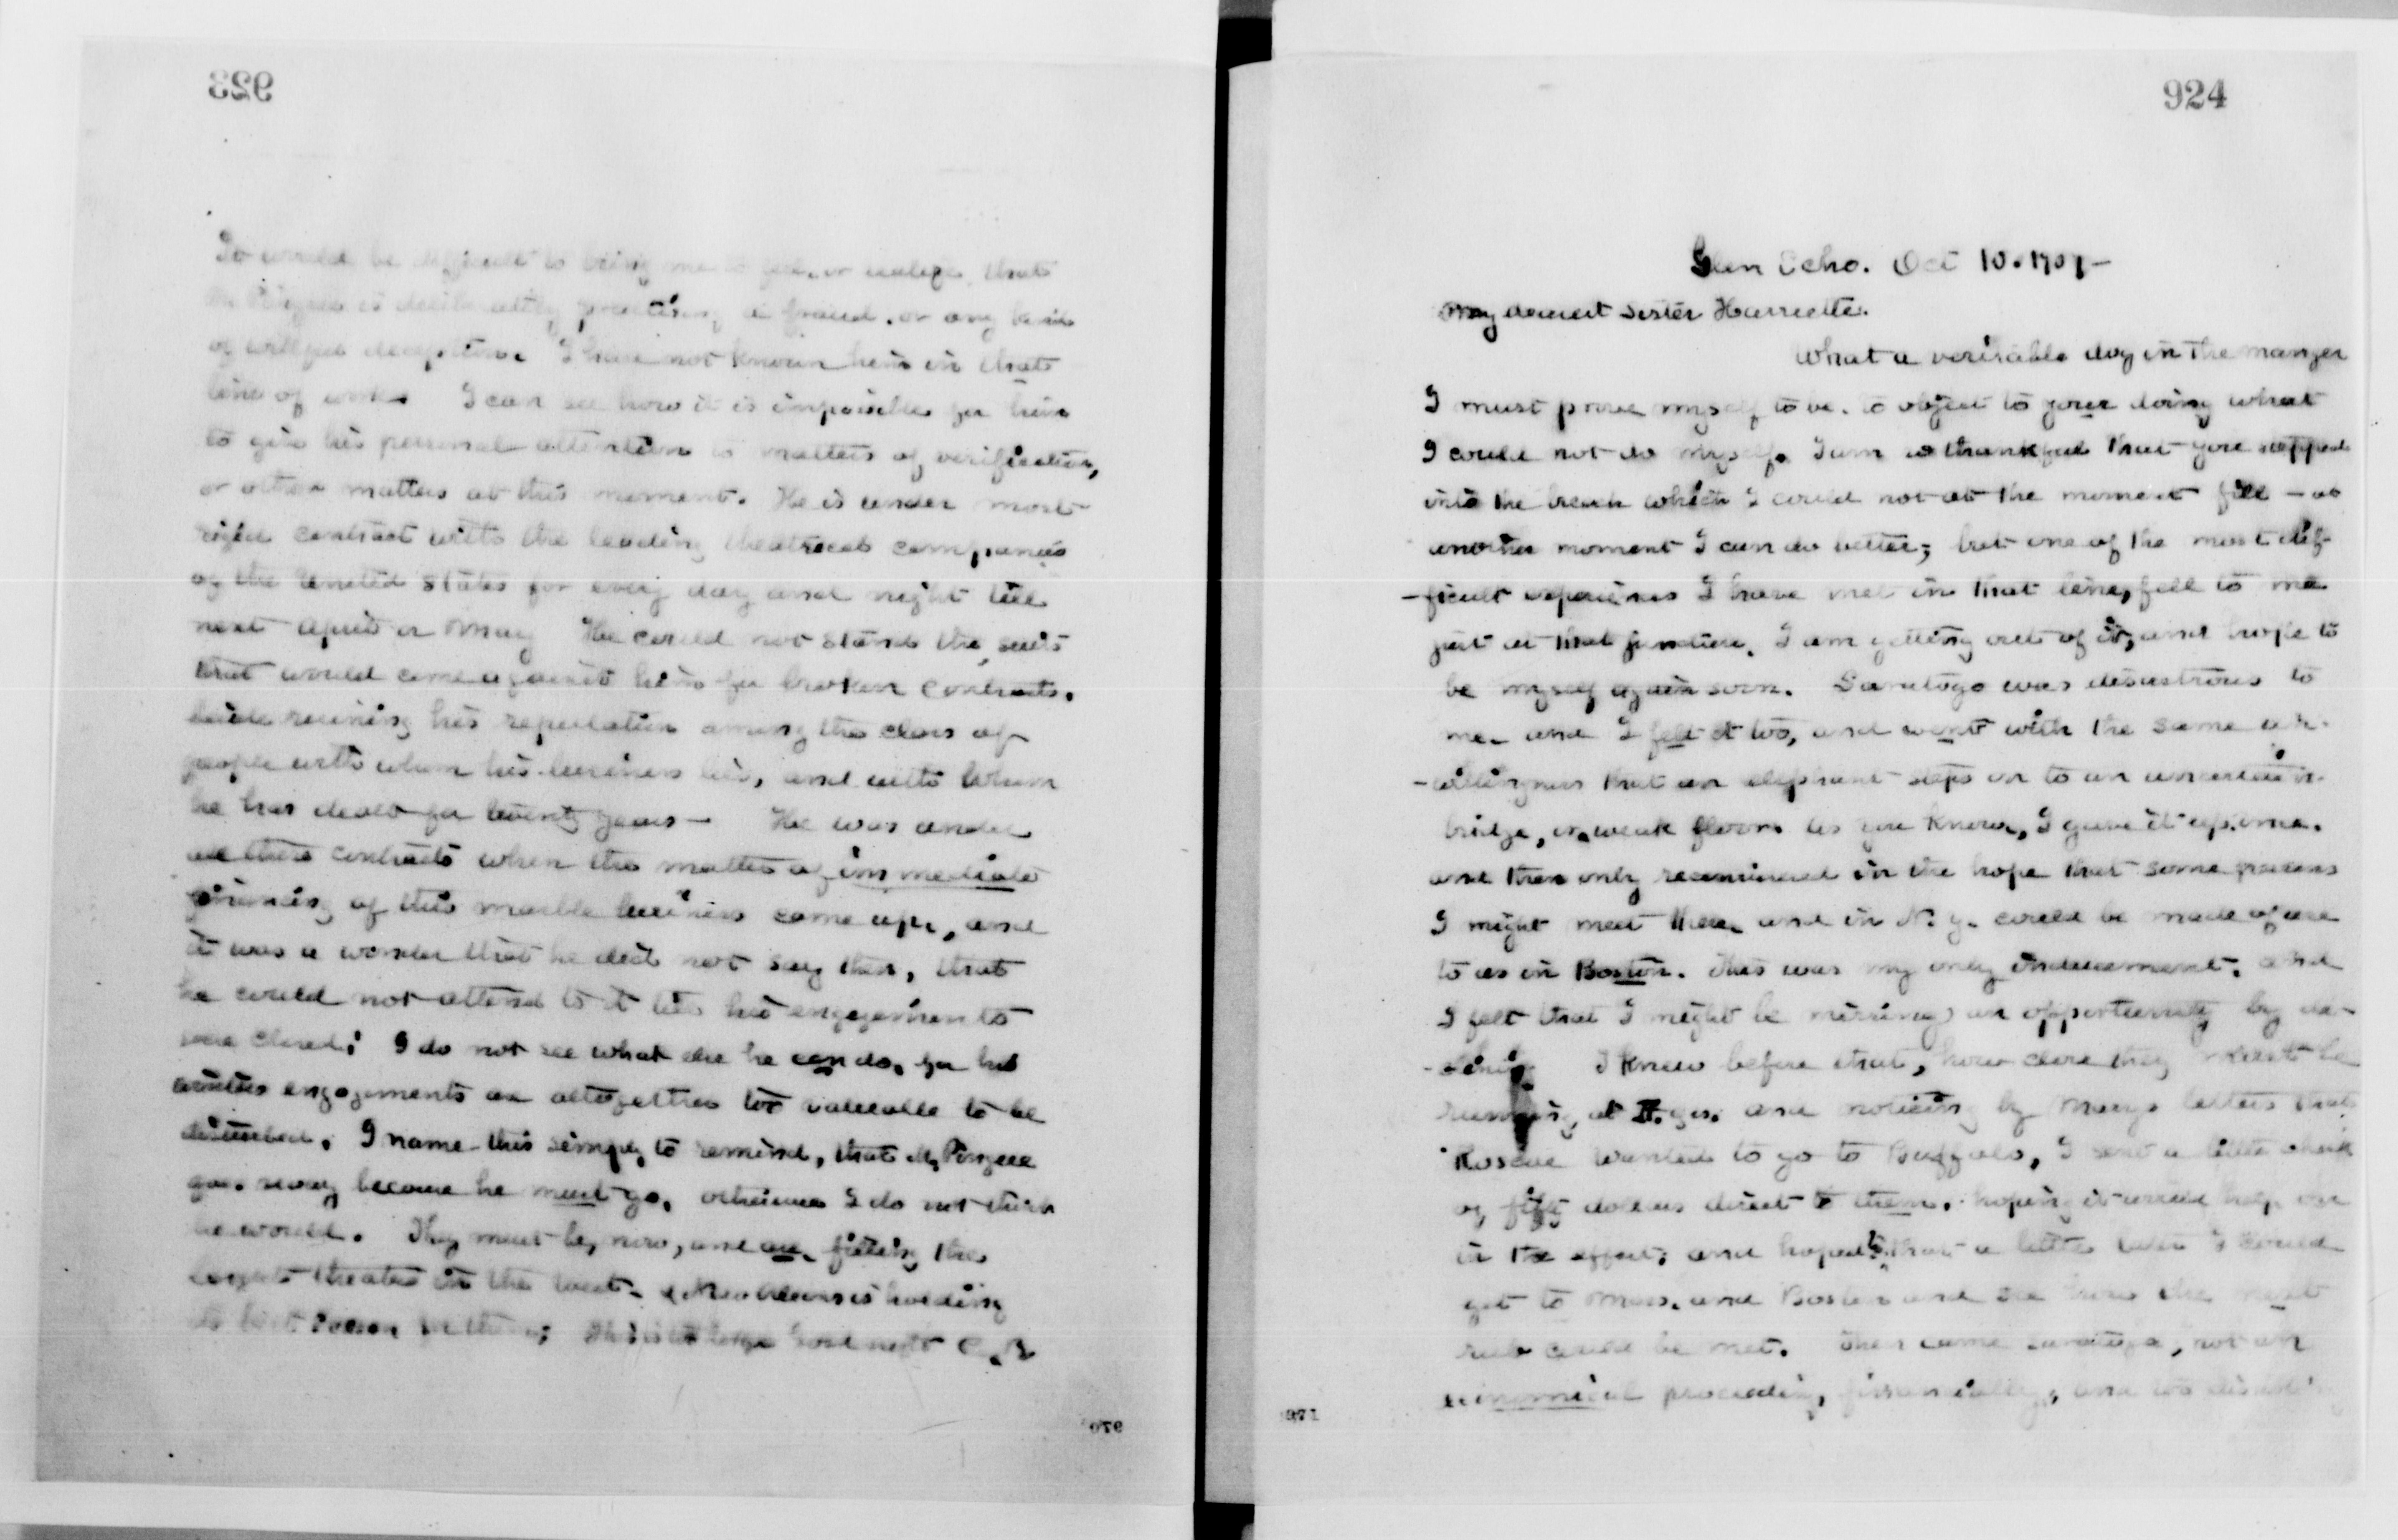 923
It would be difficult to bring me to feel, or realize, that
Mr Pingree is deliberately practising a fraud, or any kind
of willful deception. I have not known him in that
line of work. I can see how it is impossible for him
to give his personal attention to matters of verification,
or other matters at this moment. He is under most
rigid contract with the leading theatrical companies
of the United States for every day and night till
next April or May He could not stand the suits
that would come against him for broken contracts.
beside ruining his reputation among the class of
people with whom his business lies, and with whom
he has dealt for twenty years — He was under
all these contracts when the matter of immediate
of this marble business came up, and
it was a wonder that he did not say then, that
he could not attend to it till his engagements
were closed; I do not see what else he can do, for his
winter engagements are altogether too valuable to be
disturbed. I name this simply to remind, that Mr Pingree
goes away because he must go, otherwise I do not think
he would. They must be, now, and are, filling the
largest theatres in the west - & New Orleans is holding
its best for them; good night C. B
970
924
Glen Echo. Oct 10. 1901 —
My dearest Sister Harriette.
What a veritable dog in the manger
I must prove myself to be. to object to your doing what
I could not do myself. I am so thankful that you stepped
into the breach which I could not at the moment fill — at
another moment I can do better; but one of the most dif-
-ficult experiences I have met in that line, fell to me
just at that juncture. I am getting out of it, and hope to
be myself again soon. Saratoga was disastrous to
me - and I felt it too, and went with the same un-
-willingness that an elephant steps on to an uncertain
bridge, or weak floor. As you know, I gave it up once.
and then only reconsidered in the hope that some persons
I might meet there, and in N. Y. could be made of use
to us in Boston. This was my only inducement. and
I felt that I might be missing an opportunity by de-
-clining I knew before that, how close they must be
running, at and noticing by Marys letters that
Roscoe wanted to go to Buffalo, I sent a little check
of fifty dollars direct to them, hoping it would help out
in the effort; and hoped, that a little later I could
get to Mass. and Boston and see how the next
rub could be met. Then came Saratoga, not an
economical proceeding, financially, and too
971